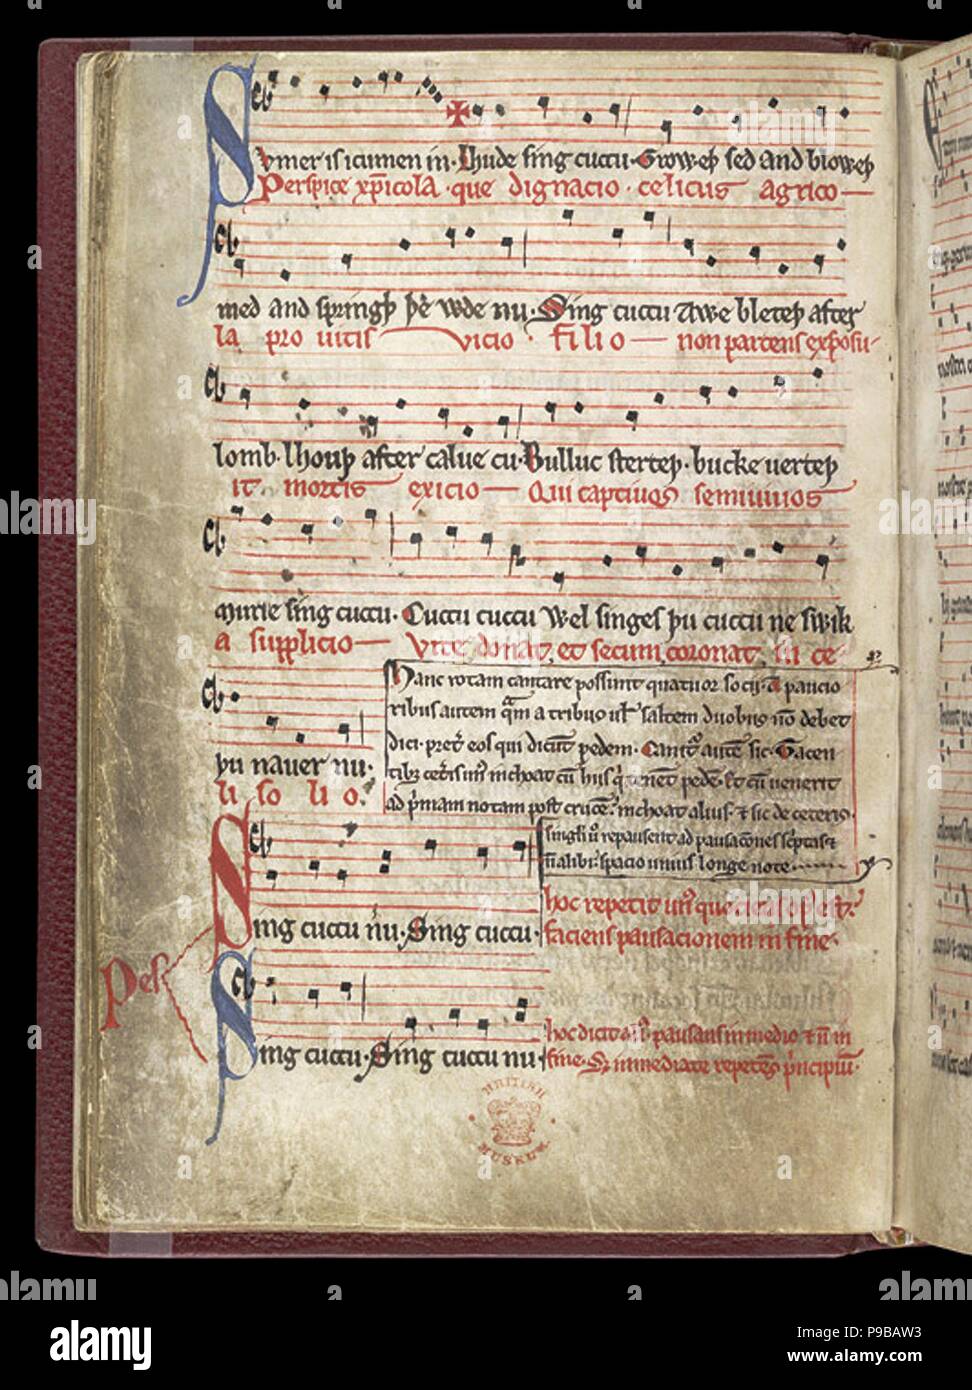 Svmer is icumen in. Lhude sing cuccu. Groweþ sed and bloweþ
Perspice xp̄icola. que dignacio. celicus agrico
med and springþ þe wde nu. Sing cuccu Awe bleteþ after
la pro uitis vicio. filio non parcens exposu-
lomb. lhouþ after calue cu. Bulluc sterteþ. bucke uerteþ
it. mortis exicio Qui captiuos semiuiuos
murie sing cuccu. Cuccu cuccu Wel singes þu cuccu ne swik
a supplicio Vite donat, et secum coronat, in ce
Hanc rotam cantare possunt quatuor socij. A paucio
þu nauer nu.
ribus autem quam a tribus uel saltem duobus non debet
li so li o.
dici. preter eos qui dicunt pedem. Canitur autem sic. Tacen
tibus ceteris unus inchoat cum hiis qui tenent pedem. Et cum uenerit
ad primam notam post crucem, inchoat alius. et sic de ceteris.
singuli uero repausent ad pausaciones scriptas et
non alibi. spacio unius longe note
Sing cuccu nu. Sing cuccu.
hoc repetit unus quociens opus est.
faciens pausacionem in fine.
Pes
Sing cuccu. Sing cuccu nu
hoc dicit alius. pausans in medio et non in
fine. Sed immediate repetens principium.
BRITISH
MUSEUM
alamy
Image ID: P9BAW3
www.alamy.com